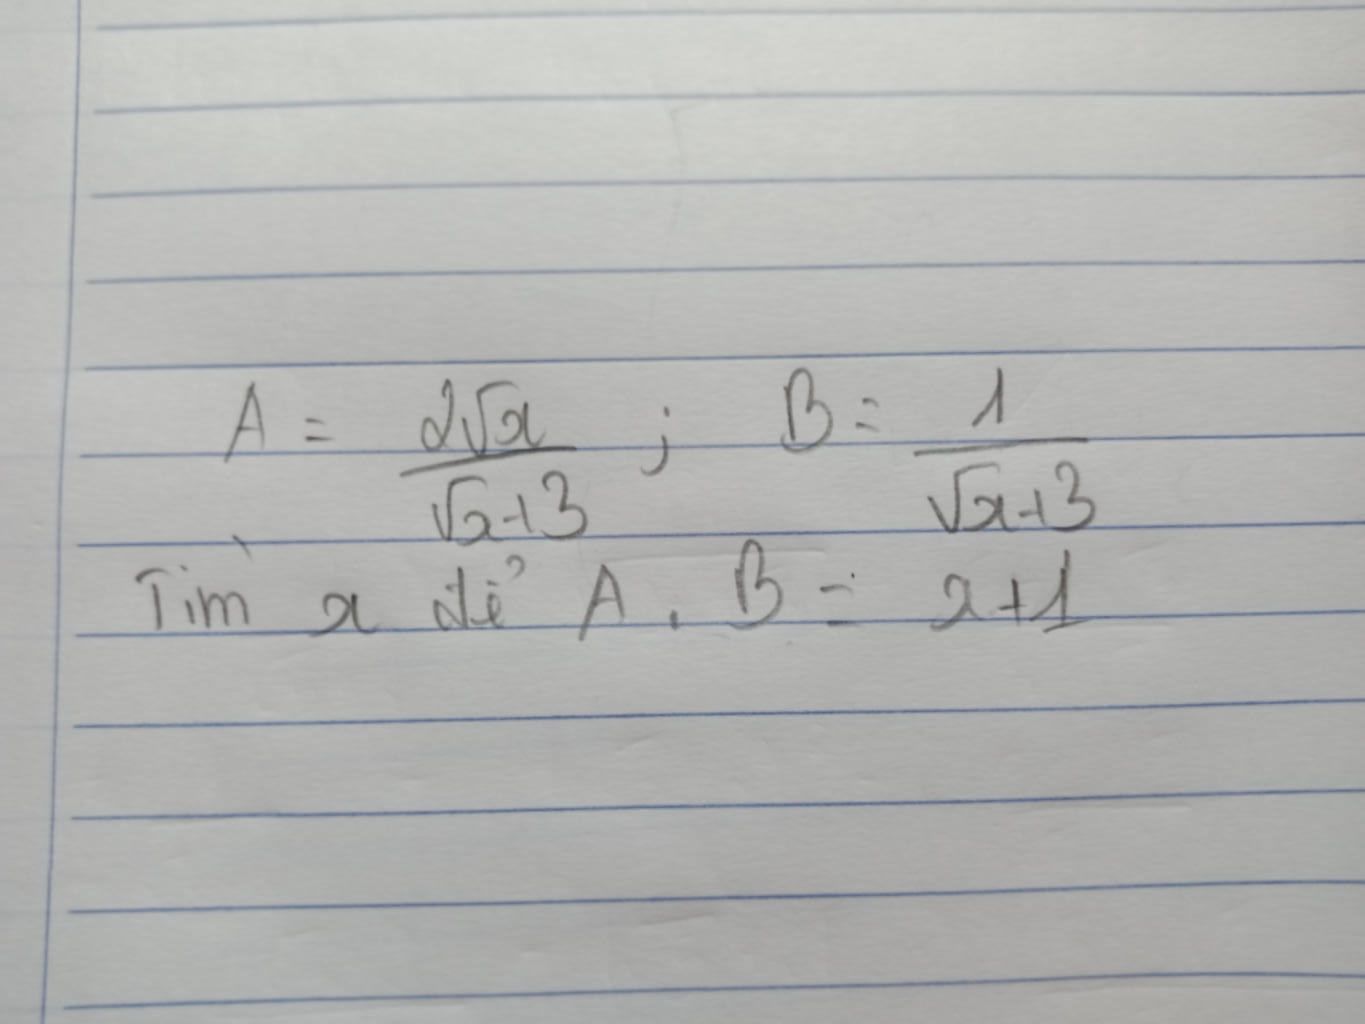 A = 2√x / √x+3 ; B = 1 / √x+3
Tìm x để A . B = x+1